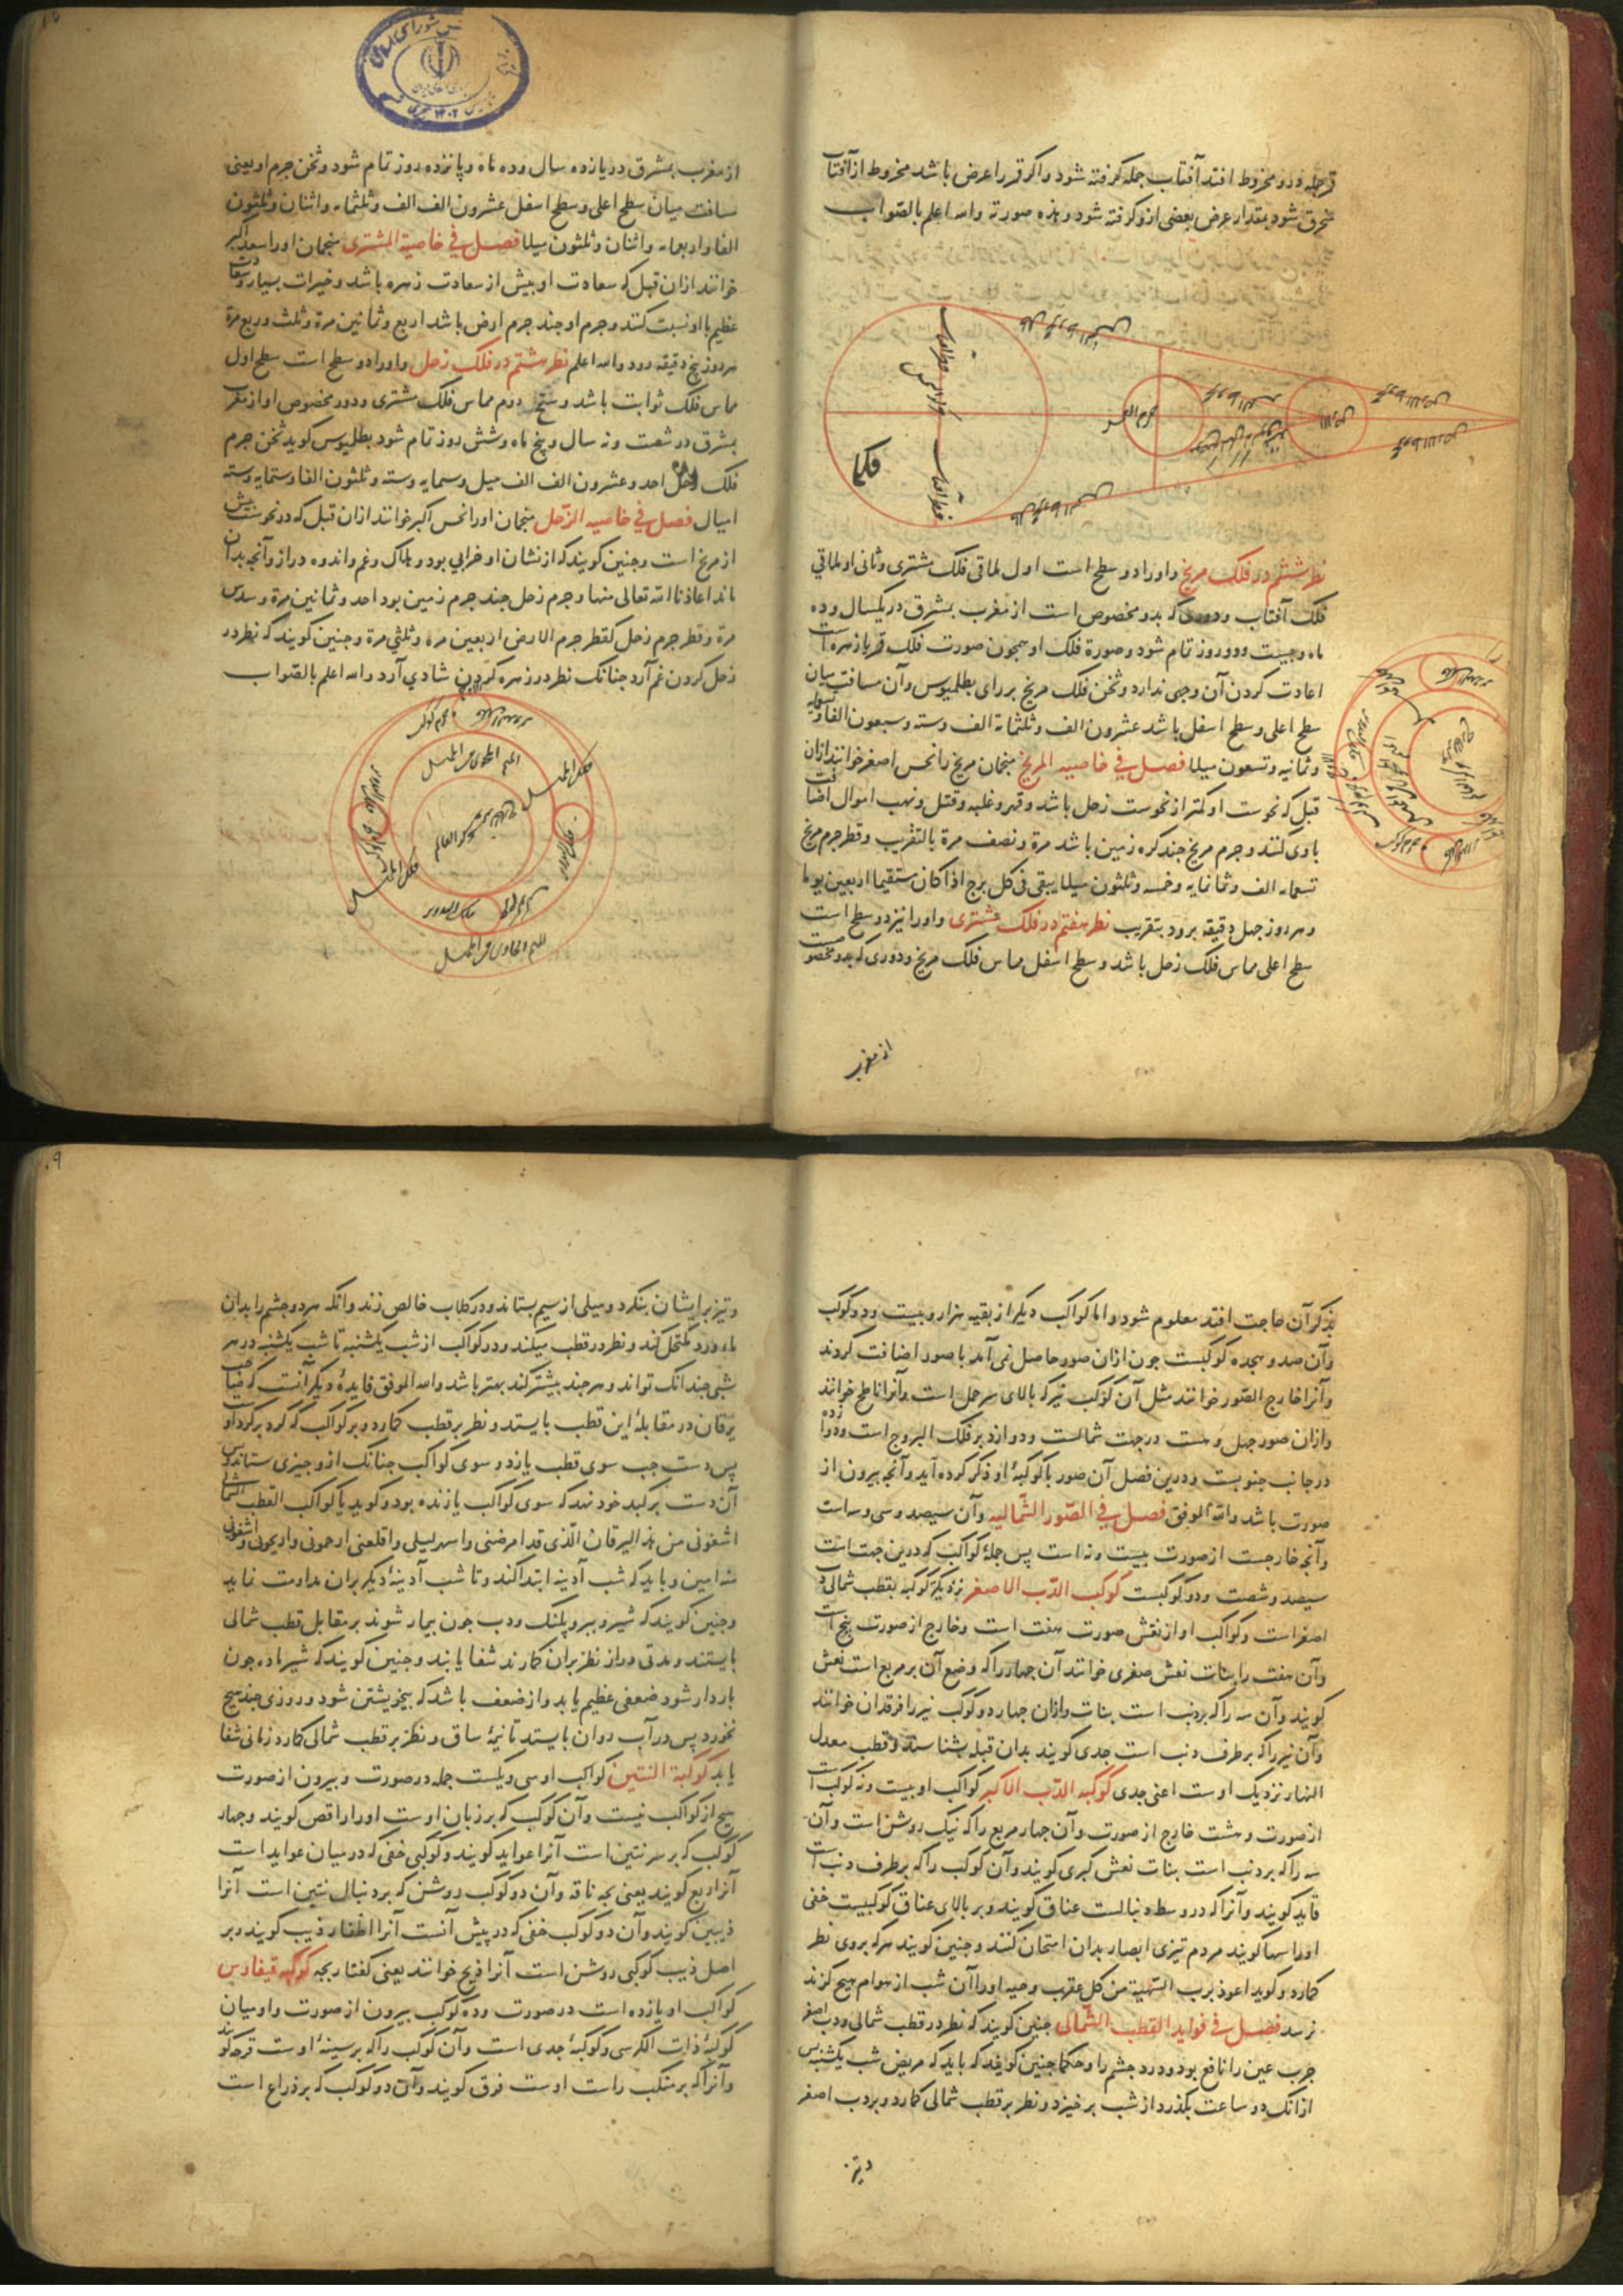 قمر جمله در مخروط افتد آفتاب جمله گرفته شود و اگر قمر را عرض باشد مخروط از آفتاب
منحرف شود بمقدار عرض بعضی ازو گرفته شود و هذه صورته والله اعلم بالصواب
فلک
نظر ششم در فلک مریخ و اورا دو سطح است اول ملاقی فلک مشتری و ثانی او ملاقی
فلک آفتاب و دوری که بدو مخصوص است از مغرب بمشرق در یکسال و ده
ماه و بیست و دو روز تمام شود و صورة فلک او همچون صورت فلک قمر باز هره است
اعادت کردن آن وجهی ندارد و ثخن فلک مریخ بر رای بطلمیوس و آن مسافت میان
سطح اعلی و سطح اسفل باشد عشرون الف و ثلثمائة الف و سته و سبعون الفا و تسعمایه
و ثمانیه و تسعون میلا فصل فی خاصیه المریخ منجمان مریخ را نحس اصغر خوانند از ان
قبل که نحوست او کمتر از نحوست زحل باشد و قهر و غلبه و قتل و نهب اموال اضافت
باوی کنند و جرم مریخ چند کره زمین باشد مرة و نصف مرة بالتقریب و قطر جرم مریخ
تسعمایه الف و ثمانمایه و خمسه و ثلثون میلا یبقی فی کل برج اذا کان مستقیما اربعین یوما
و هر روز چهل دقیقه برود بتقریب نظر هفتم در فلک مشتری و اورا نیز دو سطح است
سطح اعلی مماس فلک زحل باشد و سطح اسفل مماس فلک مریخ و دوری که بدو مخصوصست
از مغرب
از مغرب بمشرق در یازده سال و ده ماه و پانزده روز تمام شود و ثخن جرم او یعنی
مسافت میان سطح اعلی و سطح اسفل عشرون الف الف و ثلثمایه و اثنان و ثلثون
الفا و اربعمایه و اثنان و ثلثون میلا فصل فی خاصیة المشتری منجمان اورا سعد اکبر
خوانند از ان قبل که سعادت او بیش از سعادت زهره باشد و خیرات بسیار و سعادت
عظیم با او نسبت کنند و جرم او چند جرم ارض باشد اربع و ثمانین مرة و ثلث و ربع مرة
هر روز پنج دقیقه رود والله اعلم نظر هشتم در فلک زحل و اورا دو سطح است سطح اول
مماس فلک ثوابت باشد و سطح دوم مماس فلک مشتری و دور مخصوص او از مغرب
بمشرق در شصت و نه سال و پنج ماه و شش روز تمام شود بطلمیوس گوید ثخن جرم
فلک زحل احد و عشرون الف الف میل و ستمایه و سته و ثلثون الفا و ستمایه و سته
امیال فصل فی خاصیه الزحل منجمان اورا نحس اکبر خوانند از ان قبل که در نحوست بیش
از مریخ است و چنین گویند که از نشان او خرابی بود و هلاک و غم و اندوه دراز و آنچه بدان
ماند اعاذنا الله تعالی منها و جرم زحل چند جرم زمین بود احد و ثمانین مرة و سدس
مرة و قطر جرم زحل کقطر جرم الارض اربعین مره و ثلثی مرة و چنین گویند که نظر در
زحل کردن غم آرد چنانک نظر در زهره کردن شادی آرد والله اعلم بالصواب
۰۹
بذکر آن حاجت افتد معلوم شود و اما کواکب دیگر از بقیه هزار و بیست و دو کوکب
و آن صد و هجده کوکبست چون از ان صور حاصل نمی آمد با صور اضافت کردند
و آنرا خارج الصور خوانند مثل آن کوکب نیر که بالای سر حمل است و آنرا ناطح خوانند
و از ان صور چهل و هشت در جهت شمالست و دوازده بر فلک البروج است و دوازده
در جانب جنوبست و درین فصل آن صور با کوکبهٔ او ذکر کرده آید و آنچه بیرون از
صورت باشد والله الموفق فصل فی الصور الشمالیه و آن سیصد و سی و سه است
و آنچه خارجست از صورت بیست و نه است پس جملهٔ کواکب که درین جهت است
سیصد و شصت و دو کوکبست کوکب الدب الاصغر نزدیکتر کوکبه بقطب شمالی دب
اصغر است و کواکب او از نقش صورت هفت است و خارج از صورت پنج است
و آن هفت را بنات نعش صغری خوانند آن چهار را که وضع آن بر مربع است نعش
گویند و آن سه را که بر دنب است بنات و از ان چهار دو کوکب نیر را فرقدان خوانند
و آن نیر را که بر طرف دنب است جدی گویند بدان قبله شناسند و قطب معدل
النهار نزدیک اوست اعنی جدی کوکبه الدب الاکبر کواکب او بیست و نه کوکب است
از صورت و هشت خارج از صورت و آن چهار مربع را که نیک روشن است و آن
سه را که بر دنب است بنات نعش کبری گویند و آن کوکب را که بر طرف دنب است
قاید گویند و آنرا که در وسط دنبالست عناق گویند و بر بالای عناق کوکبیست خفی
اورا سها گویند مردم تیزی ابصار بدان امتحان کنند و چنین گویند هرکه بروی نظر
گمارد و گوید اعوذ برب السهیة من کل عقرب و حیه اورا آن شب از هوام هیچ گزند
نرسد فصل فی فواید القطب الشمالی چنین گویند که نظر در قطب شمالی و دب اصغر
جرب عین را نافع بود و درد چشم را و حکما چنین گویند که باید که مریض شب یکشنبه پس
از آنک دو ساعت بگذرد از شب برخیزد و نظر بر قطب شمالی گمارد و بر دب اصغر
و تیز
و تیز بر ایشان بنگرد و میلی از سیم بستاند و در گلاب خالص زند و آنکه هر دو چشم را بدان
ماء ورد مکتحل کند و نظر در قطب میکند و در کواکب از شب یکشنبه تا شب یکشنبه در هر
شبی چندانک تواند و هر چند بیشتر کند بهتر باشد والله الموفق فایدهٔ دیگر آنست که صاحب
یرقان در مقابلهٔ این قطب بایستد و نظر بر قطب گمارد و بر کواکب که گرد بر گرد اوست
پس دست چپ سوی قطب یازد و سوی کواکب چنانک ازو چیزی ستاند پس
آن دست بر کبد خود نهد که سوی کواکب یازنده بود و گوید یا کواکب القطب الشمالی
اشفونی من هذا الیرقان الذی قد امرضنی و اسهر لیلی و اقلعنی ارحمونی و اریحونی و اشفونی
منه امین و باید که شب آدینه ابتدا کند و تا شب آدینهٔ دیگر بران مداومت نماید
و چنین گویند که شیر و ببر و پلنک و دب چون بیمار شوند بر مقابل قطب شمالی
بایستند و مدتی دراز نظر بران گمارند شفا یابند و چنین گویند که شیر ماده چون
باردار شود ضعفی عظیم یابد و از ضعف باشد که بیخویشتن شود و روزی چند هیچ
نخورد پس در آب روان بایستد تا نیمهٔ ساق و نظر بر قطب شمالی گمارد زمانی شفا
یابد کوکبة التنین کواکب او سی و یکست جمله در صورت و بیرون از صورت
هیچ از کواکب نیست و آن کوکب که بر زبان اوست اورا راقص گویند و چهار
کوکب که بر سر تنین است آنرا عواید گویند و کوکبی خفی که در میان عواید است
آنرا ربع گویند یعنی بچه ناقه و آن دو کوکب روشن که بر دنبال تنین است آنرا
ذیبین گویند و آن دو کوکب خفی که در پیش آنست آنرا اظفار ذیب گویند و بر
اصل ذیب کوکبی روشن است آنرا ذیخ خوانند یعنی کفتار بچه کوکبه قیفاوس
کواکب او یازده است در صورت و ده کوکب بیرون از صورت و او میان
کوکبهٔ ذات الکرسی و کوکبهٔ جدی است و آن کوکب را که بر سینهٔ اوست قرحه گویند
و آنرا که بر منکب راست اوست فرق گویند و آن دو کوکب که بر ذراع است